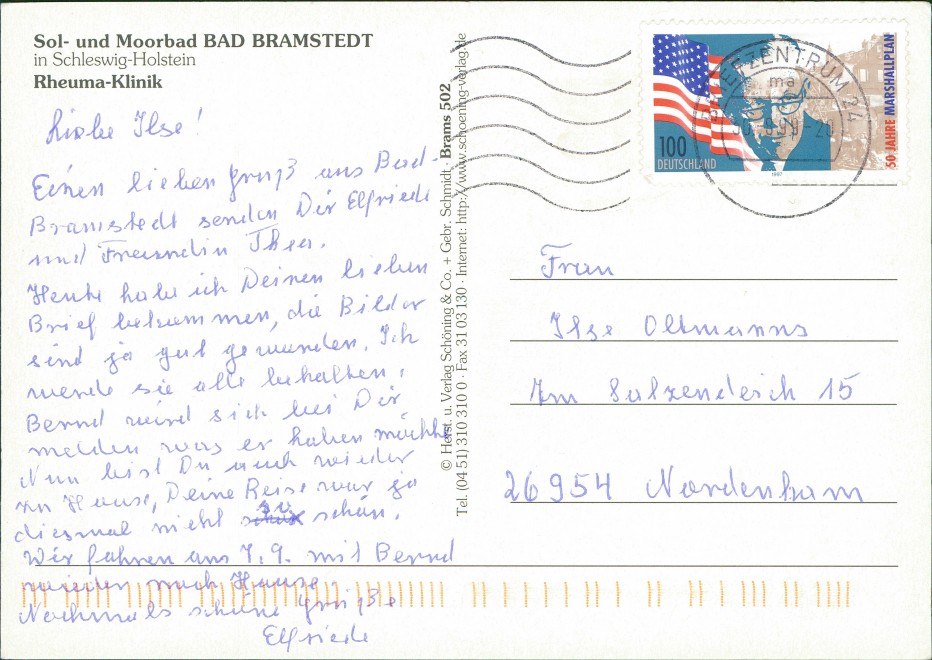 Sol- und Moorbad BAD BRAMSTEDT
in Schleswig-Holstein
Rheuma-Klinik
Liebe Ilse!
Einen lieben Gruß aus Bad-
Bramstedt senden Dir Elfriede
und Freundin Thea.
Heute habe ich Deinen lieben
Brief bekommen, die Bilder
sind ja gut geworden. Ich
werde sie alle behalten.
Bernd wird sich bei Dir
melden was er haben möchte
Nun bist Du auch wieder
zu Hause, Deine Reise war ja
diesmal nicht so schön.
Wir fahren am 7.9. mit Bernd
wieder nach Hause.
Nochmals schöne Grüße
Elfriede
© Herst. u. Verlag Schöning & Co. + Gebr. Schmidt, Brams 502
Tel. (04 51) 310 310 0 · Fax 31 03 130 · Internet: http://www.schoening-verlag.de
100
DEUTSCHLAND
50 JAHRE MARSHALLPLAN
1997
BRIEFZENTRUM 24
ma
Frau
Ilse Oltmanns
Am Salzendeich 15
26954 Nordenham